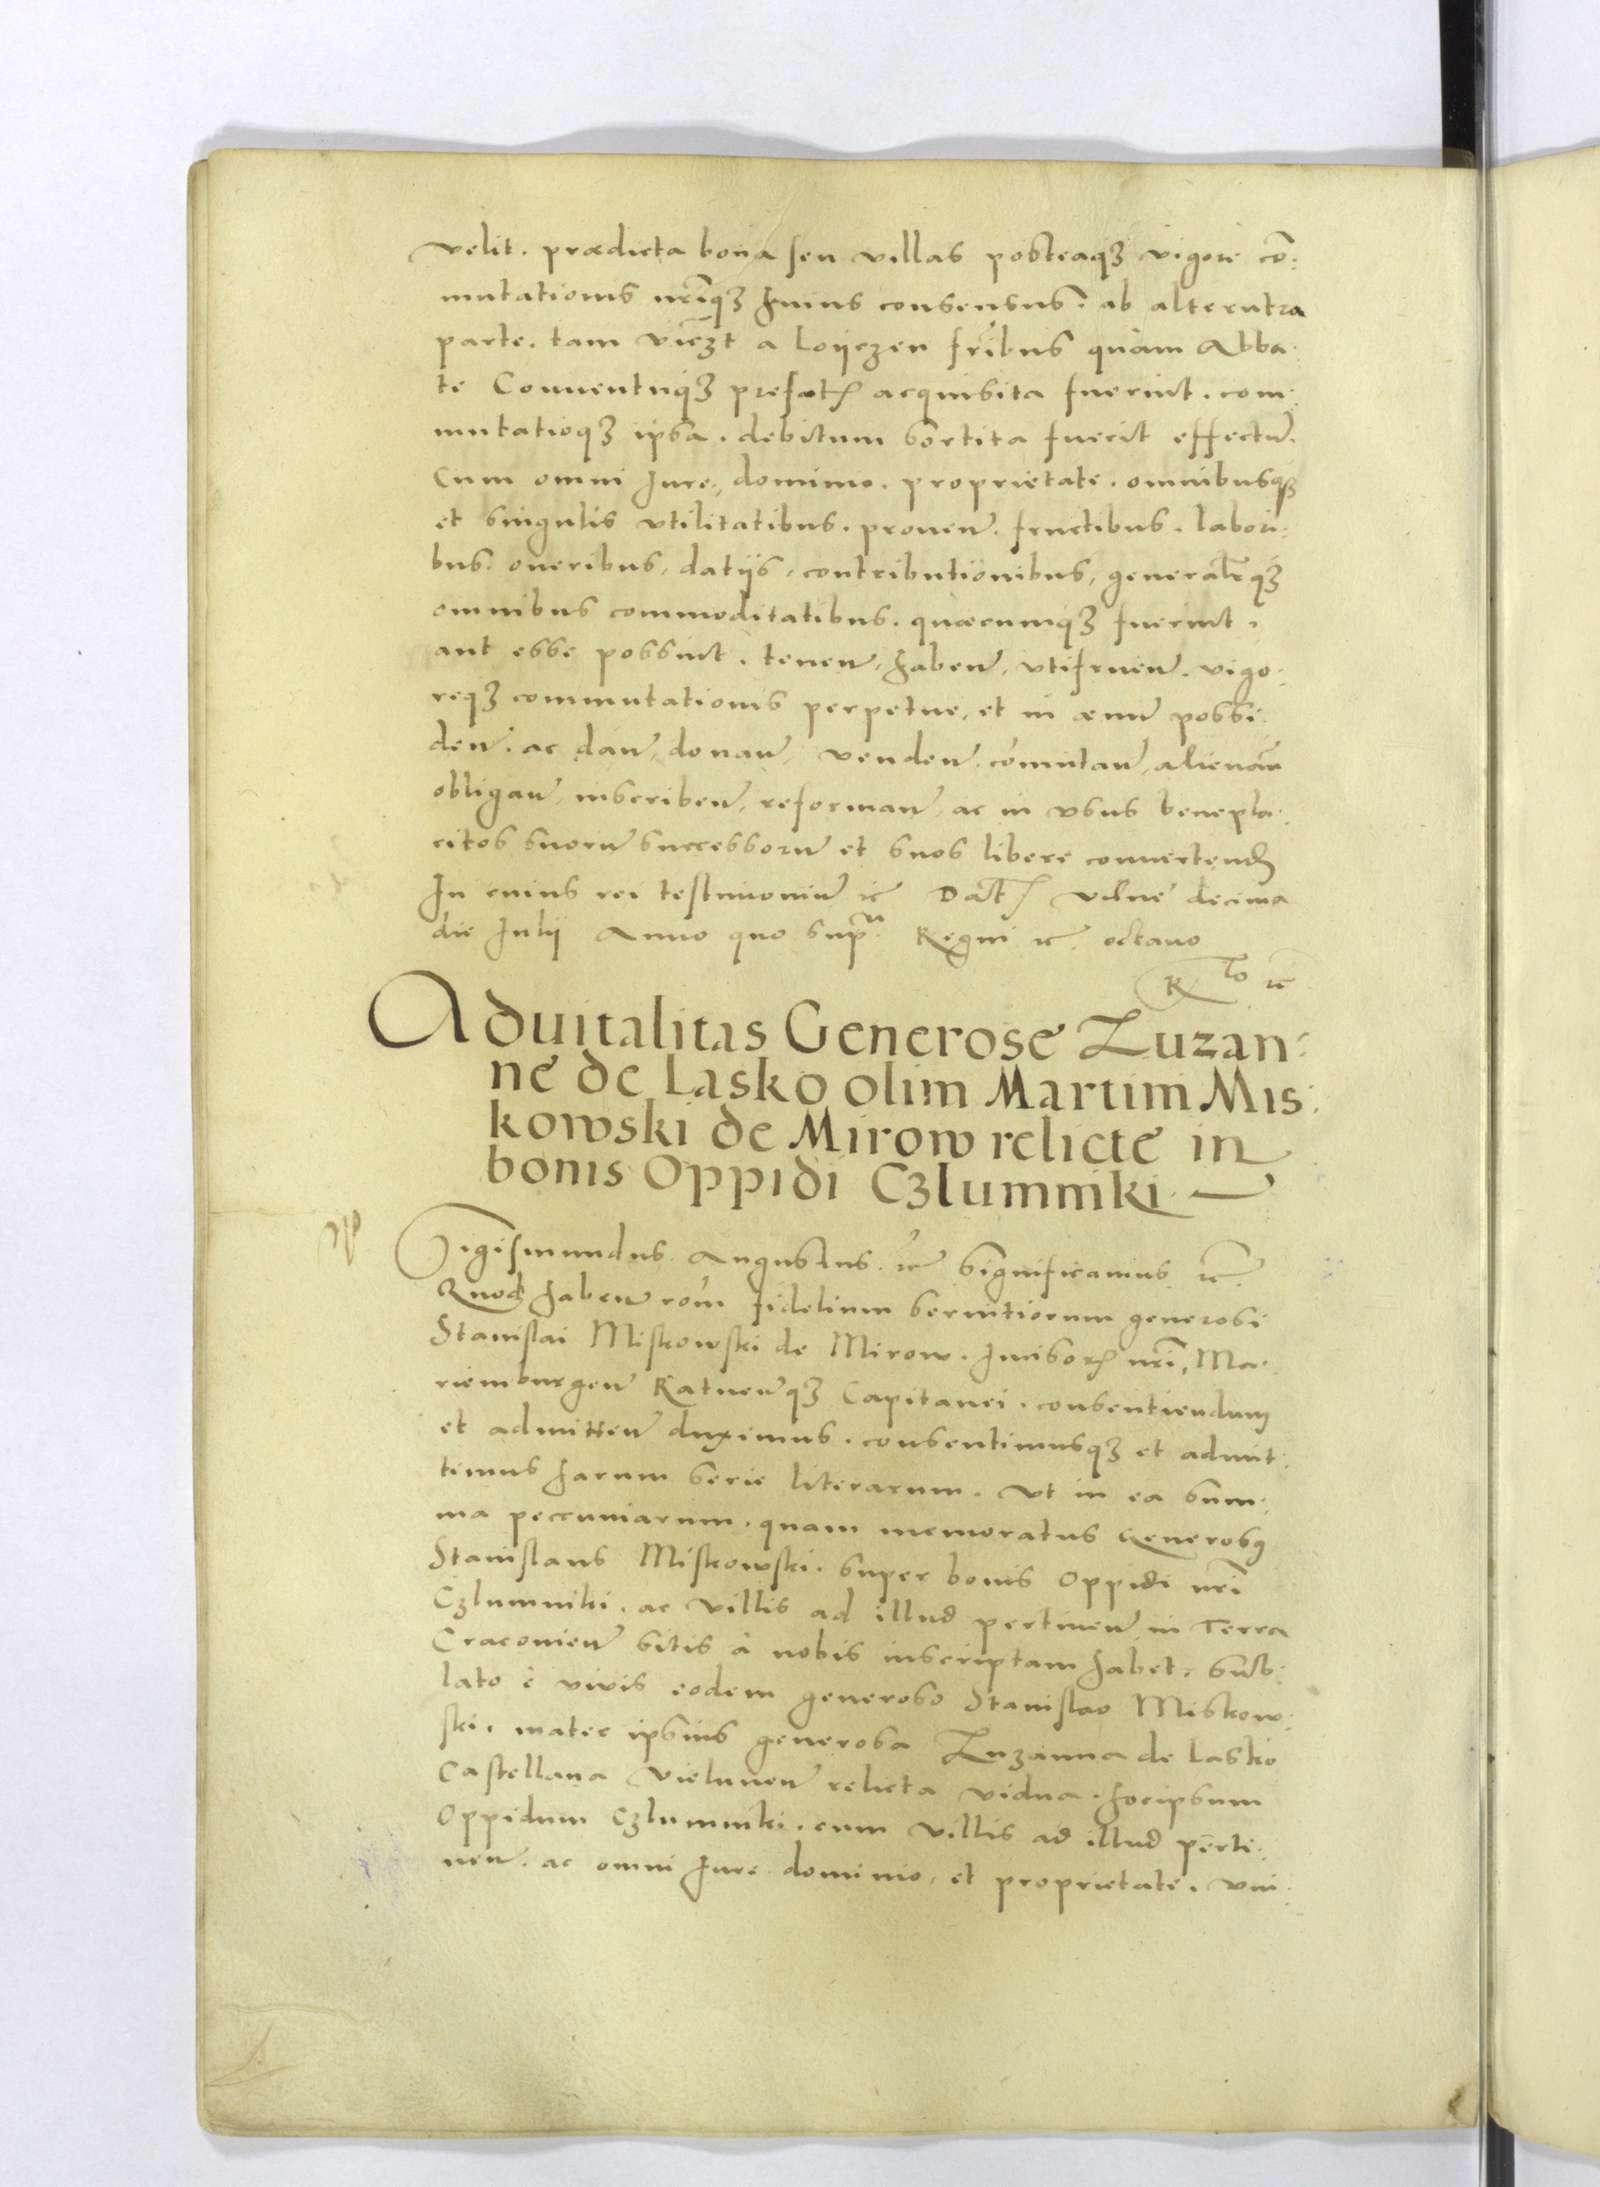 velit. prædicta bona seu villas posteaqꝫ vigore co͞:
mutationis nr͞iqꝫ huius consensus. ab alterutra
parte. tam vicꝫt a Loyczen fr͞ibus quàm Abba:
te Conuentuqꝫ prefatꝭ acquisita fuerint. com:
mutatioqꝫ ipsa. debitum sortita fuerit effectu͞.
Cum omni Iure, dominio. proprietate. omnibusqꝫ
et singulis vtilitatibus. prouen͞. fructibus. labori:
bus. oneribus, datijs, contributionibus, general͞rqꝫ
omnibus commoditatibus. quæcumqꝫ fuerint.
aut esse possint. tenen͞, haben͞, vtifruen͞. vigo:
reqꝫ commutationis perpetue, et in æuu͞ possi:
den͞. ac dan͞, donan͞, venden͞. co͞mutan͞, alienan͞
obligan͞, inscriben͞, reforman͞, ac in vsus benepla:
citos suoru͞ successoru͞ et suos libere conuertend͞
In cuius rei testimoniu͞ ꝛc͞ Datꝭ Vilnę decima
die Iulij Anno quo supra. Regni ꝛc. octauo
R to ꝛc
Aduitalitas Generose Zuzan:
ne de Lasko olim Martini Mis:
kowski de Mirow relicte in
bonis Oppidi Cꝫlumniki
Sigismundus Augustus ꝛc͞ Significamus ꝛc͞.
Quod haben͞ ro͞m fidelium seruitiorum generosi
Stanislai Miskowski de Mirow. Incisorꝭ nr͞i, Ma:
riemburgen͞ Ratnen͞qꝫ Capitanei. consentiendum
et admitten͞ duximus. consentimusqꝫ et admit:
timus harum serie literarum. Vt in ea sum:
ma peccuniarum. quam memoratus Generosꝰ
Stanislaus Miskowski. super bonis Oppidi nr͞i
Cꝫlumniki. ac villis ad illud pertinen͞ in Terra
Cracouien͞ sitis à nobis inscriptam habet, sub:
lato è viuis eodem generoso Stanislao Miskow:
ski. mater ipsius generosa Zuzanna de Lasko
Castellana Vielunen͞ relicta vidua. hocipsum
Oppidum Cꝫlumniki. cum villis ad illud perti:
nen͞. ac omni Iure dominio, et proprietate. vni: